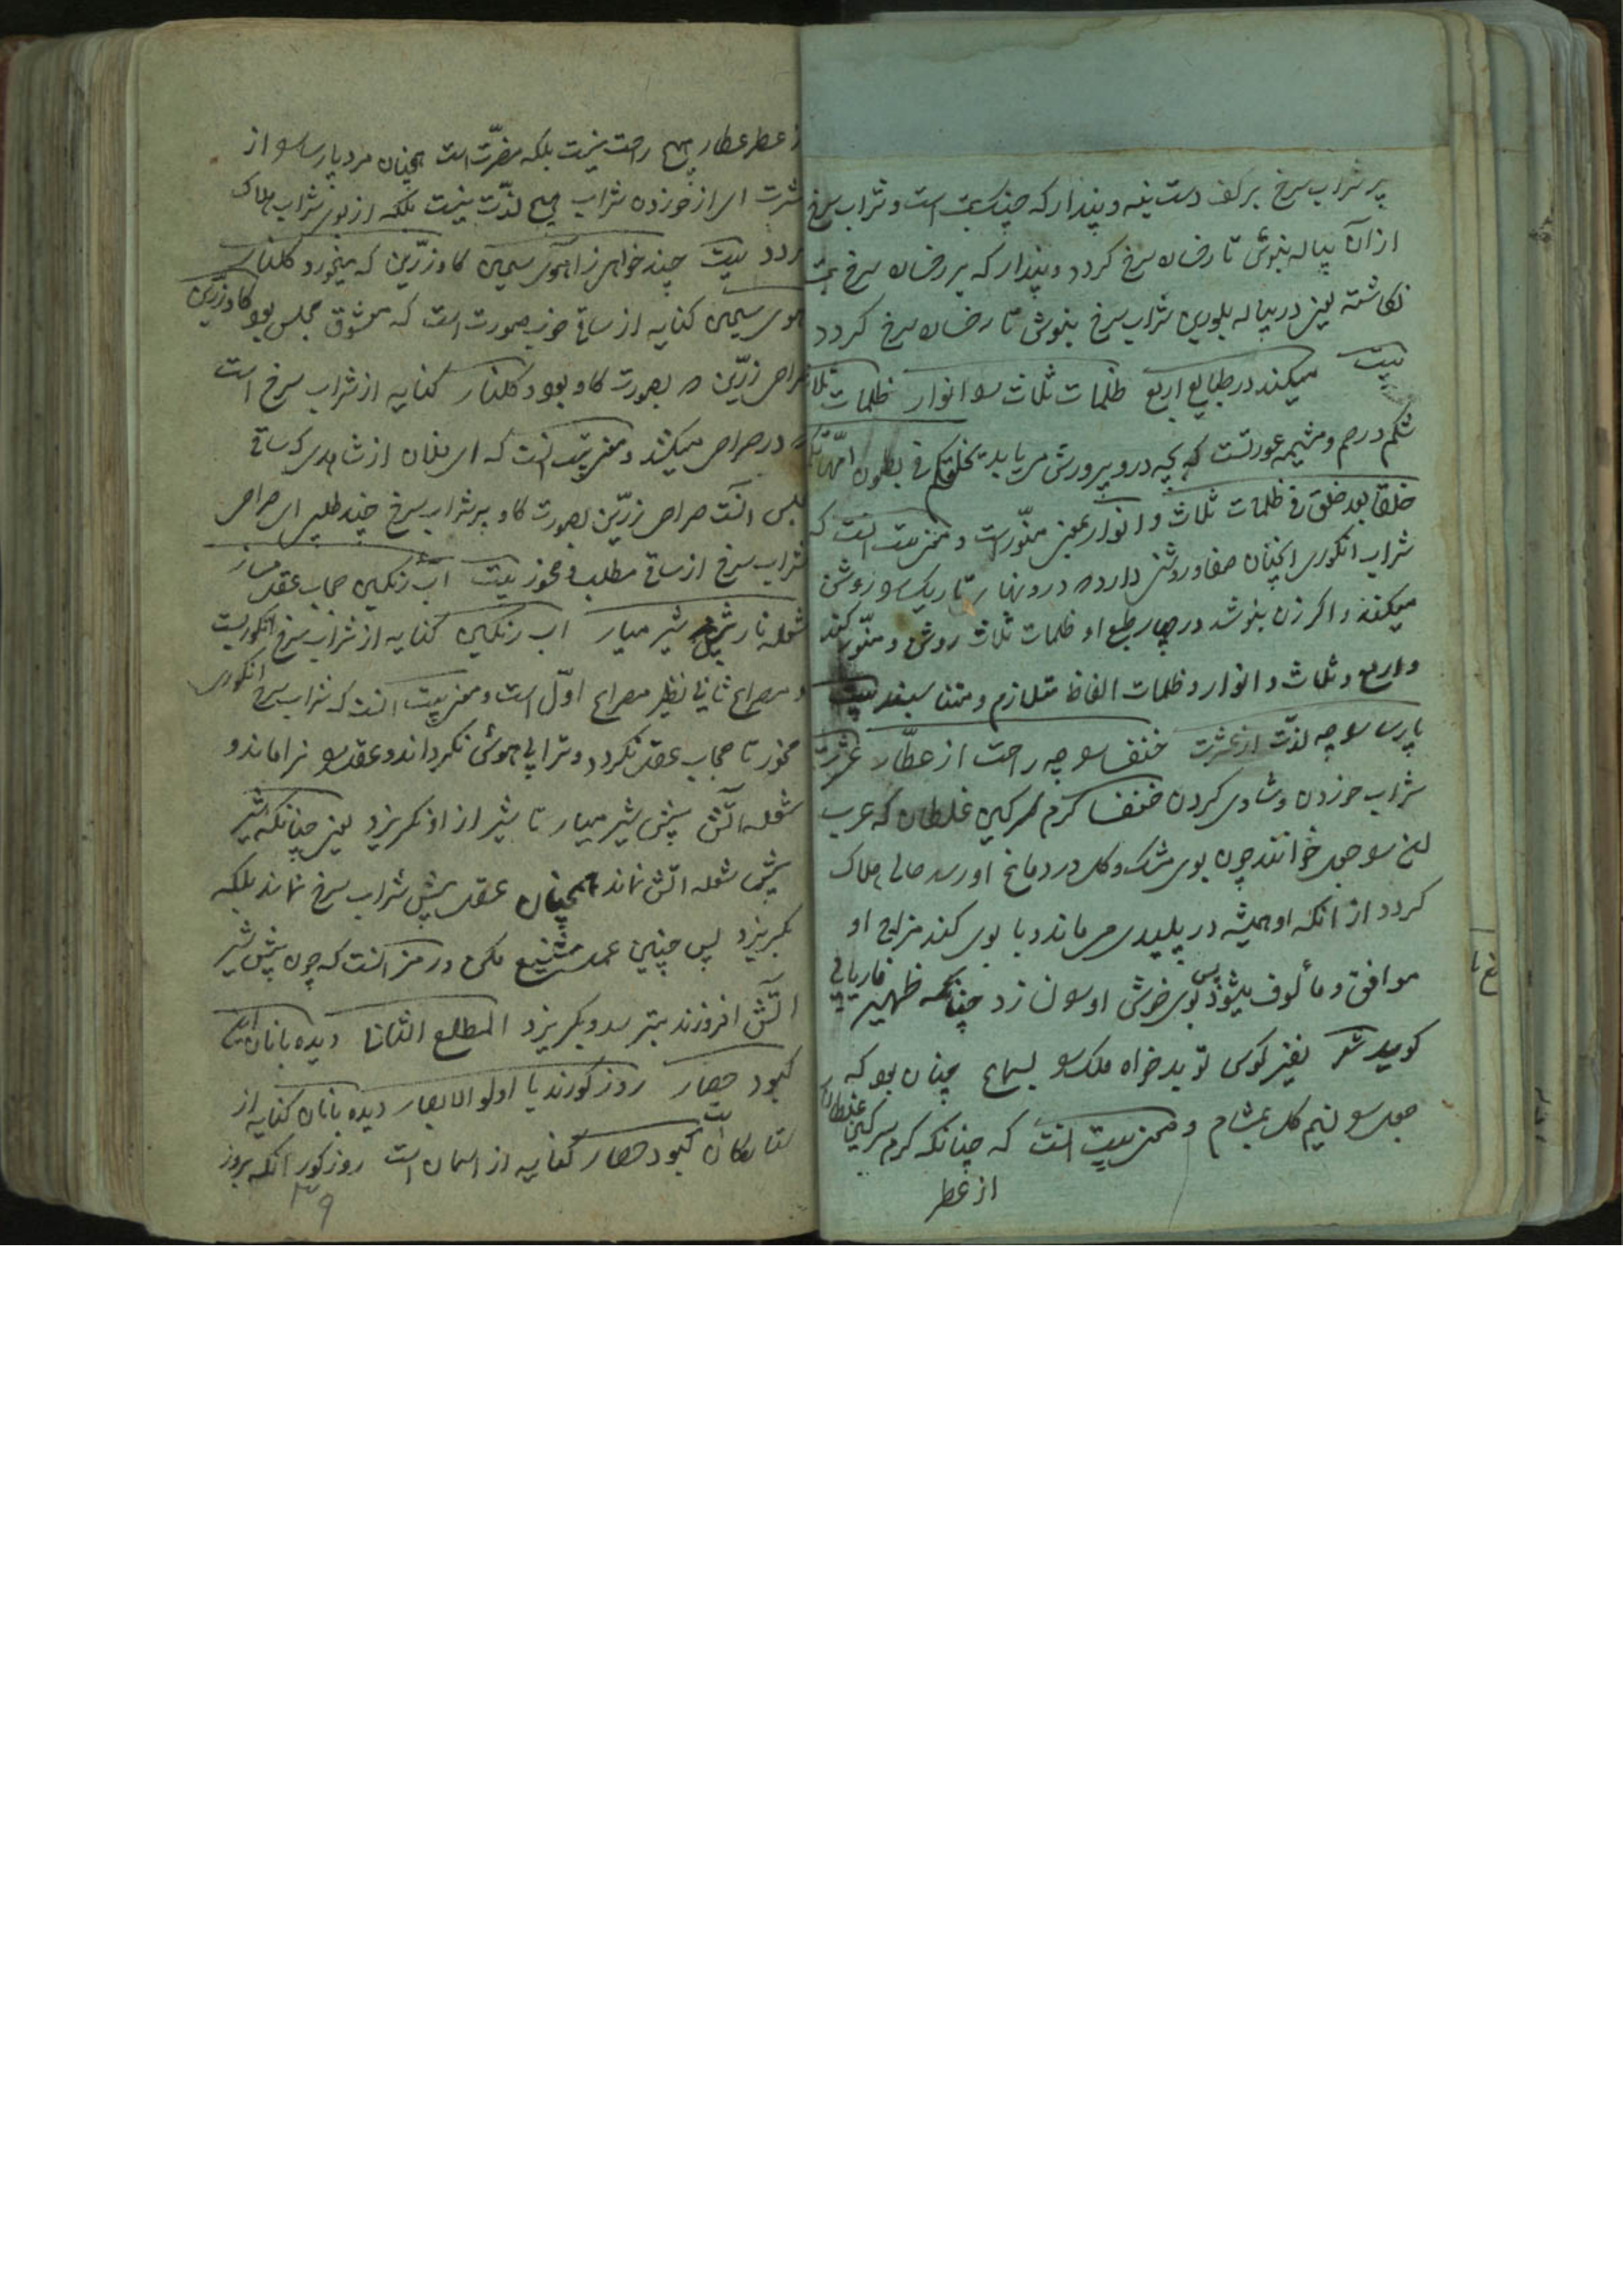 پر شراب سرخ بر کف دست بنه و پندار که چنان است و شراب سرخ
از ان پیاله بنوش تا رخسان سرخ کردد و پندار که بر رخسان سرخ
نکاشته یعنی در پیاله بلورین شراب سرخ بنوش تا رخسان سرخ کردد
بیت میکند در طبایع اربع ظلمات ثلاث سو انوار ظلمات ثلاث
شکم و رحم و مشیمه عورتست که بچه درو پرورش می یابد یخلقکم فی بطون امهاتکم
خلقا بعد خلق فی ظلمات ثلاث و انوار بمعنی منور است و معنی بیت انست که
شراب انکوری انچنان صفا و روشنی دارد درونها تاریک سو روشن
میکند و اکر زن بنوشد در چهار طبع او ظلمات ثلاث روشن و منور کند
و اربع و ثلاث و انوار و ظلمات الفاظ متلازم و متناسبند بیت
پارسا سو چه لذت از عشرت خنفسا سو چه راحت از عطار عشرت
شراب خوردن و شادی کردن خنفسا کرم سرکین غلطان که عرب
سو جعل خوانند چون بوی مشک و کل در دماغ او رسد حالی هلاک
کردد از انکه او همیشه در پلیدی می ماند و با بوی کند مزاج او
موافق و مألوف میشود پس بوی خوش او سو ن زد چنانکه ظهیر فاریابی
کوید شعر نفیر کوس تو بدخواه ملک سو بسماع چنان بود که
جعل سو نسیم کل بمشام و معنی بیت انست که چنانکه کرم سرکین غلطان
از عطر
از عطر عطار هیچ راحت نیست بلکه مضرت است همچنان مرد پارسا سو از
عشرت ای از خوردن شراب هیچ لذت نیست بلکه از بوی شراب هلاک
کردد بیت چند خواهی ز آهوی سیمین کاو زرین که میخورد کلنار
آهوی سیمین کنایه از ساقی خوب صورت است که معشوق مجلس بود کاو زرین
صراحی زرین بصورت کاو بود و کلنار کنایه از شراب سرخ است
در صراحی میکنند و معنی بیت انست که ای فلان از شاهدی که ساقی
مجلس است صراحی زرین بصورت کاو پر شراب سرخ چند طلبی ای صراحی
شراب سرخ از ساقی مطلب و مخور بیت آب رنکین حجاب عقل مساز
شعله نار پیش شیر میار اب رنکین کنایه از شراب سرخ انکوریست
و مصراع ثانی نظیر مصراع اول است و معنی بیت انست که شراب سرخ انکوری
مخور تا حجاب عقل نکردد و ترا بی هوش نکرداند و عقل سو نرماند و
شعله آتش پیش شیر میار تا شیر از او نکریزد یعنی چنانکه شیر
پیش شعله اتش نماند همچنان عقل پیش شراب سرخ نماند بلکه
بکریزد پس چنین عمل شنیع مکن و رمز انست که چون پیش شیر
آتش افروزند بترسد و بکریزد المطلع الثانی دیده بانان این
کبود حصار روز کورند یا اولو الابصار دیده بانان کنایه از
ستارکان است کبود حصار کنایه از اسمان است روز کور انکه بروز
۳۹